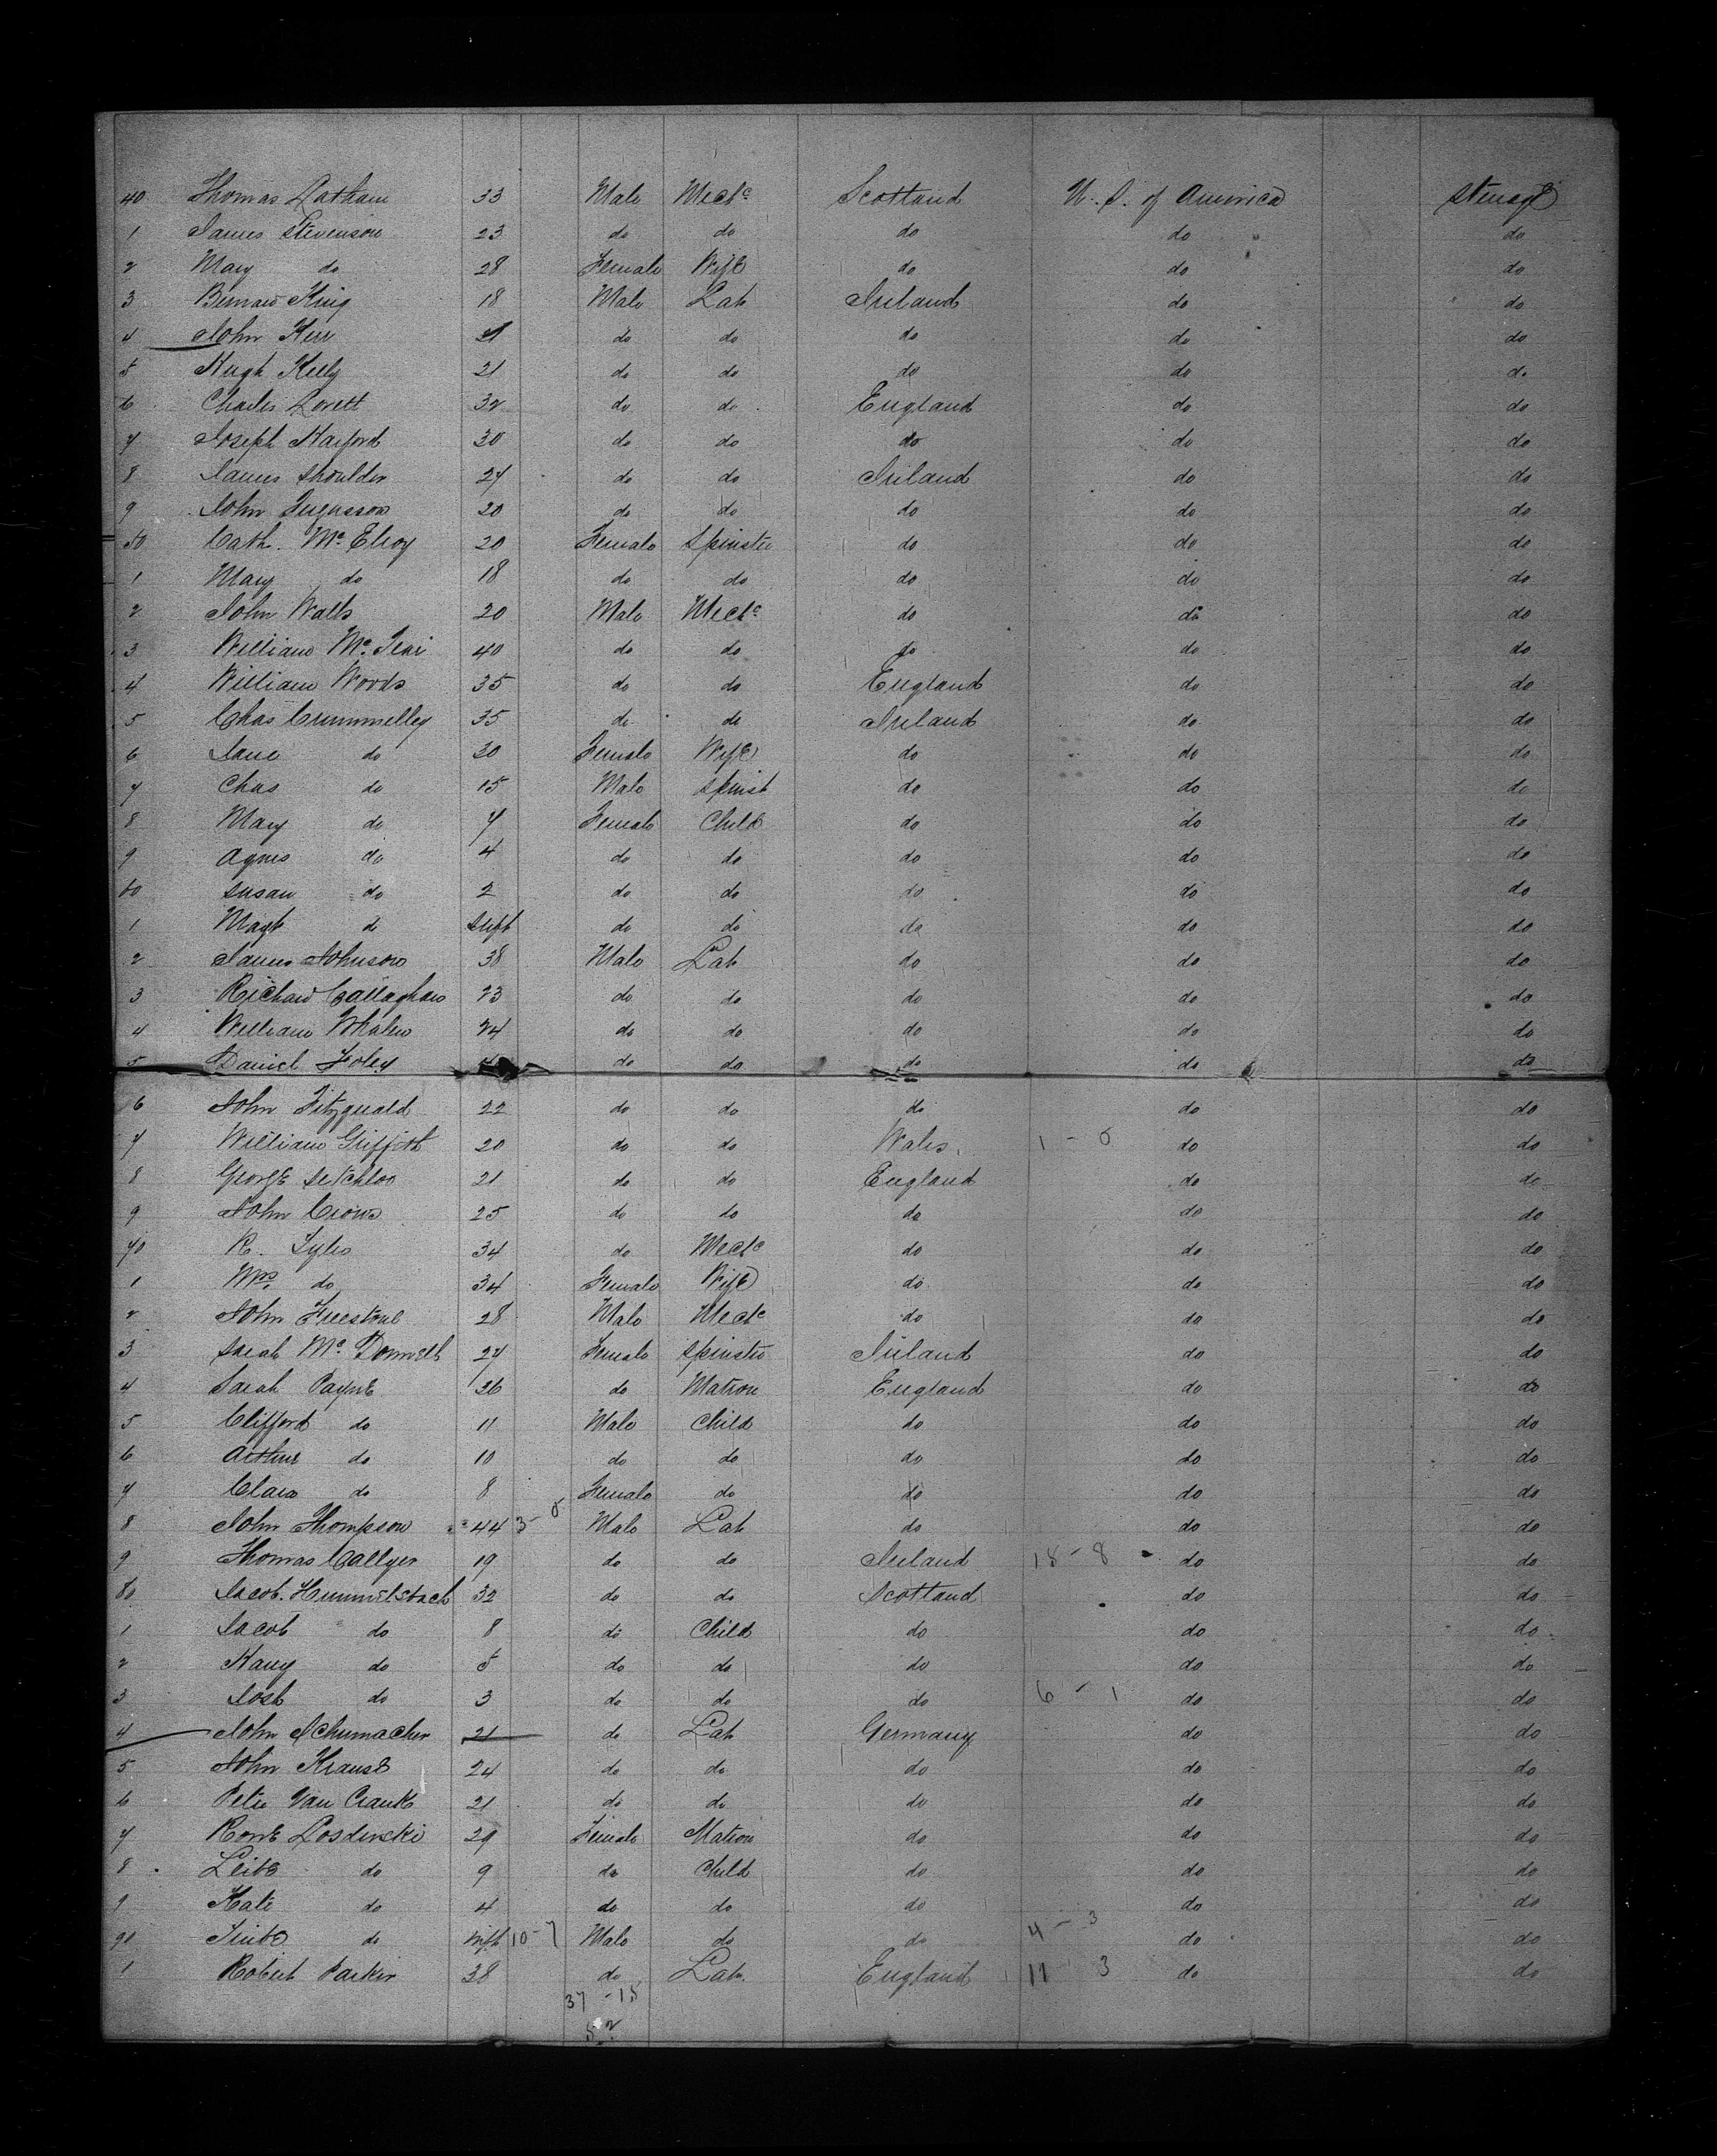 40 Thomas Latham 33 Male Mech^c Scotland U. S. of America Steerage
1 James Stevenson 23 do do do do do
2 Mary do 28 Female Wife do do do
3 Bernard King 18 Male Lab Ireland do do
4 John Kerr 21 do do do do do
5 Hugh Kelly 21 do do do do do
6 Charles Lovett 32 do do England do do
7 Joseph Harford 30 do do do do do
8 James Shoulder 27 do do Ireland do do
9 John Fergusson 20 do do do do do
50 Cath. Mc Elroy 20 Female Spinster do do do
1 Mary do 18 do do do do do
2 John Watts 20 Male Mech^c do do do
3 William Mc 40 do do do do do
4 William Woods 35 do do England do do
5 Chas Crummelley 35 do do Ireland do do
6 Jane do 30 Female Wife do do do
7 Chas do 15 Male Spinst do do do
8 Mary do 7 Female Child do do do
9 Agnes do 4 do do do do do
60 Susan do 2 do do do do do
1 Magt do Inft do do do do do
2 James Johnson 38 Male Lab do do do
3 Richard Callaghan 23 do do do do do
4 William Whalen 24 do do do do do
5 Daniel Foley do do do do do
6 John Fitzgerald 22 do do do do do
7 William Griffith 20 do do Wales. 1 - 0 do do
8 George 21 do do England do do
9 John Crows 25 do do do do do
70 R. Tyler 34 do Mech^c do do do
1 Mrs. do 34 Female Wife do do do
2 John Freestone 28 Male Mech^c do do do
3 Sarah Mc Donnell 27 Female Spinster Ireland do do
4 Sarah Payne 36 do Matron England do do
5 Clifford do 11 Male Child do do do
6 Arthur do 10 do do do do do
7 Clara do 8 Female do do do do
8 John Thompson 44 3 - 0 Male Lab do do do
9 Thomas Callyer 19 do do Ireland 18 - 8 do do
80 Jacob. Hummelsbach 32 do do Scotland do do
1 Jacob do 8 do Child do do do
2 Harry do 5 do do do do do
3 do 3 do do do 6 - 1 do do
4 John Schumacher 21 do Lab Germany do do
5 John Krause 24 do do do do do
6 Peter Van 21 do do do do do
7 29 Female Matron do do do
8 do 9 do Child do do do
9 Kate do 4 do do do do do
90 do Inft 10 - 7 Male do do 4 - 3 do do
1 Robert Parker 38 do Lab. England 11 3 do do
37 - 15
52